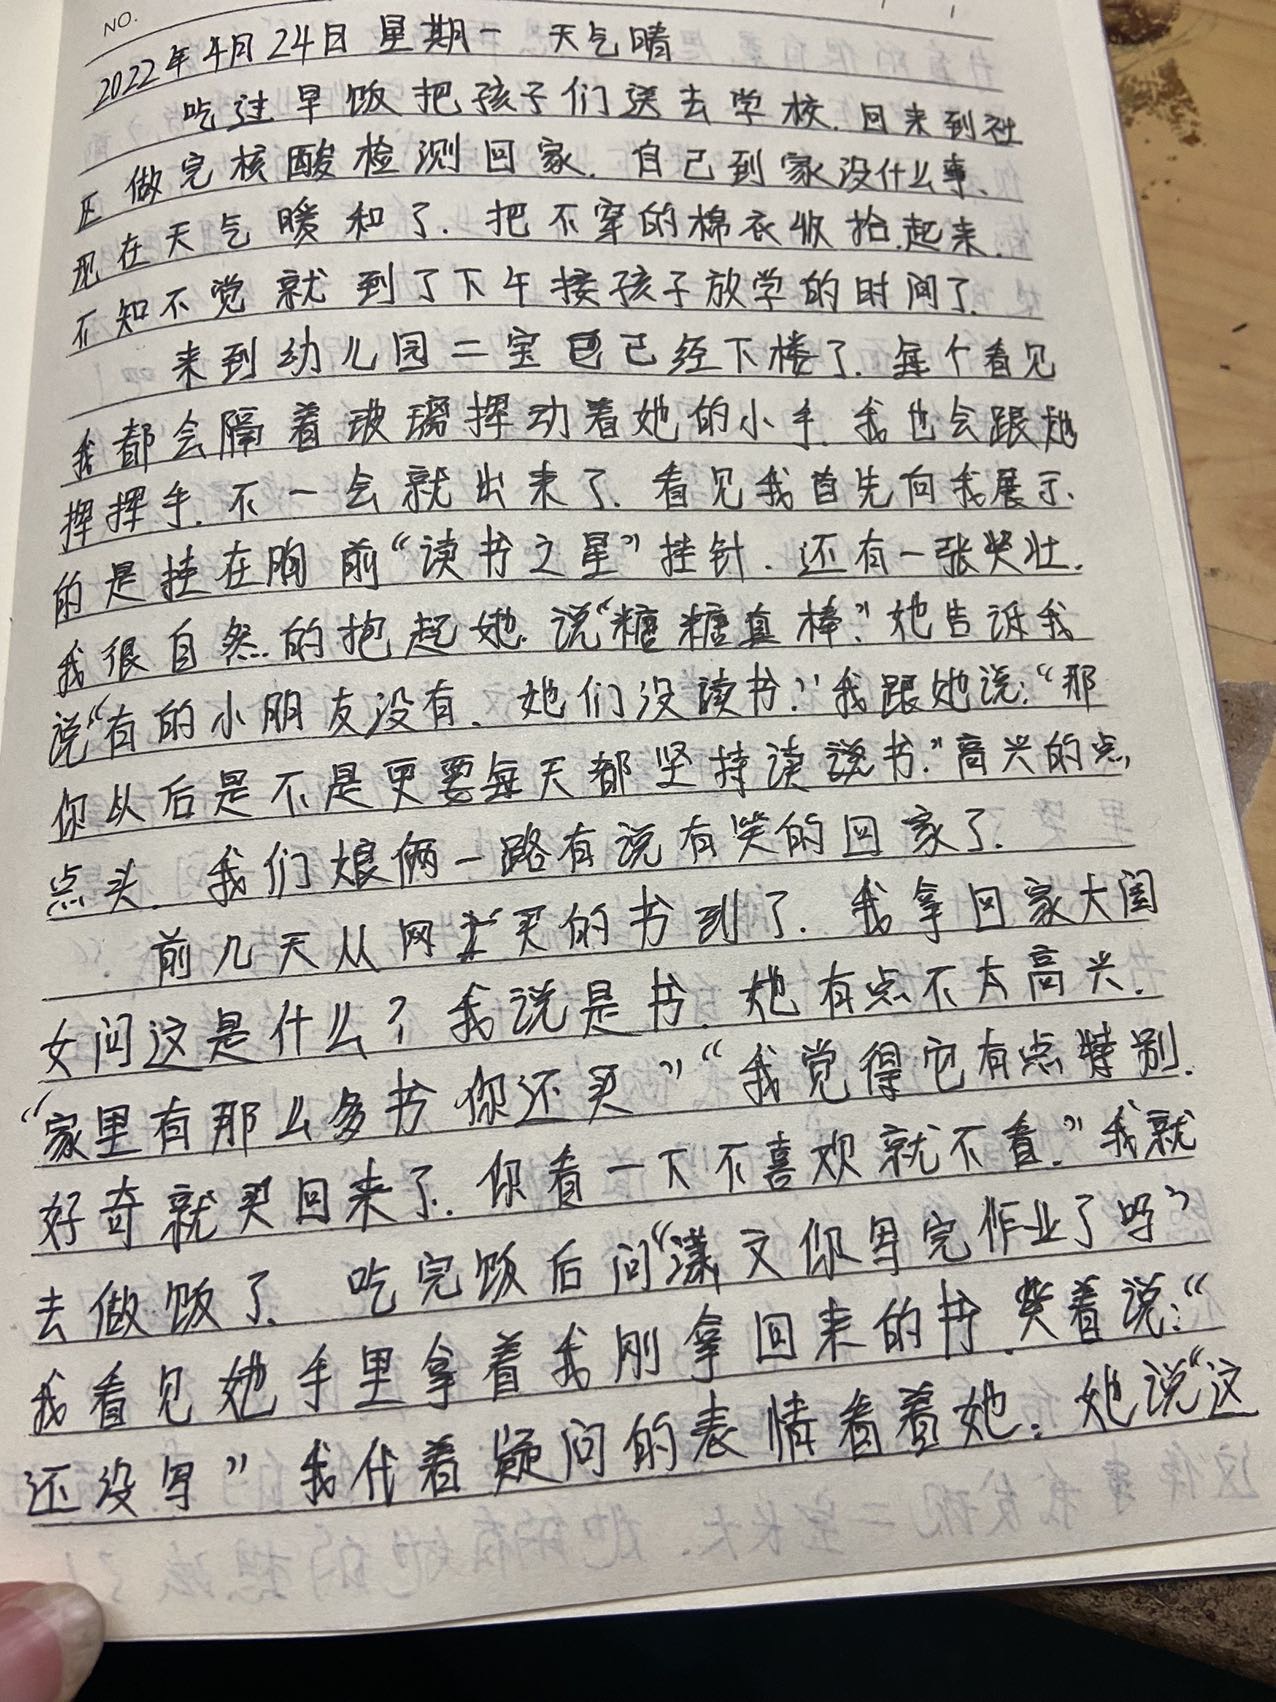 NO.
2022年4月24日 星期一 天气晴
吃过早饭把孩子们送去学校.回来到社
区做完核酸检测回家.自己到家没什么事、
现在天气暖和了.把不穿的棉衣收拾起来.
不知不觉就到了下午接孩子放学的时间了.
来到幼儿园二宝已经下楼了.每个看见
我都会隔着玻璃挥动着她的小手.我也会跟她
挥挥手.不一会就出来了.看见我首先向我展示.
的是挂在胸前“读书之星”挂针.还有一张奖壮.
我很自然的抱起她.说“糖糖真棒.”她告诉我
说“有的小朋友没有.她们没读书.”我跟她说:“那
你以后是不是更要每天都坚持读说书.”高兴的点
点头.我们娘俩一路有说有笑的回家了.
前几天从网上买的书到了.我拿回家大闺
女问这是什么?我说是书.她有点不太高兴.
“家里有那么多书你还买”“我觉得它有点特别.
好奇就买回来了.你看一下不喜欢就不看.”我就
去做饭了.吃完饭后问“漾文你写完作业了吗”
我看见她手里拿着我刚拿回来的书.笑着说:“
还没写”我代着疑问的表情看着她.她说“这